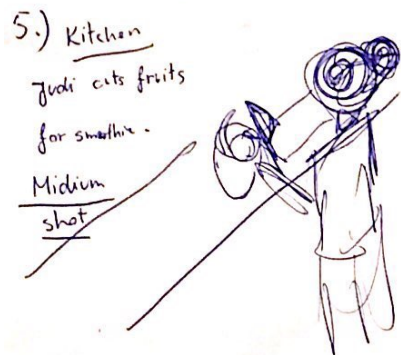 5.) Kitchen
Judi cuts fruits
for smothie.
Midium
shot